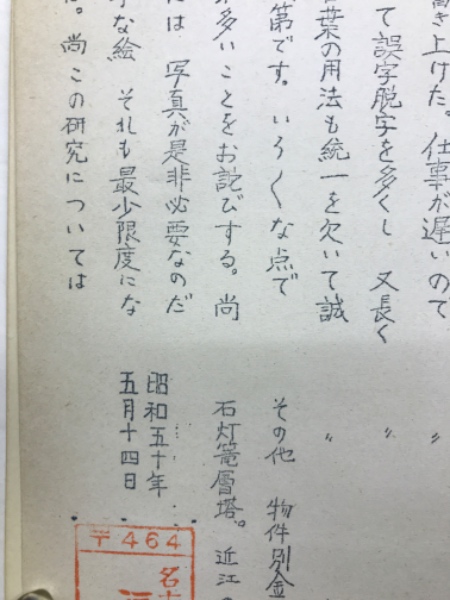 き上げた。仕事が遅いので
て誤字脱字を多くし 又長く
葉の用法も統一を欠いて誠
第です。いろ〱な点で
多いことをお詫びする。尚
は 写真が是非必要なのだ
な絵 それも最少限度にな
。尚この研究については
〃
〃
〃
その他 物件別金
石灯篭層塔。近江
昭和五十年
五月十四日
〒464
名